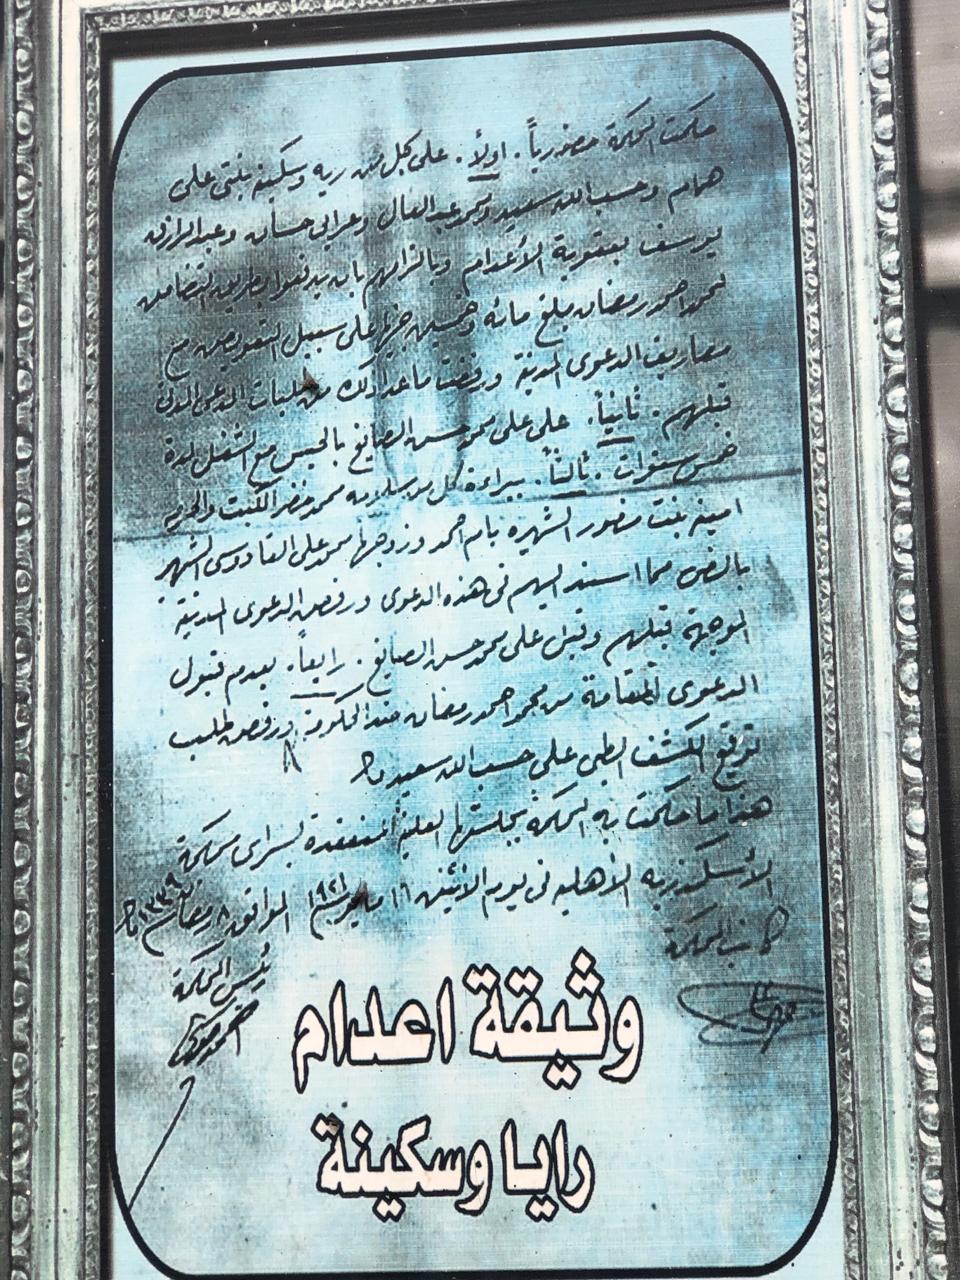 حكمت المحكمة حضورياً. اولاً. على كل من ريه وسكينه بنتى على
همام وحسب الله سعيد ومحمد عبد العال وعرابى حسان وعبد الرازق
يوسف بعقوبة الأعدام وبالزامهم بان يدفعوا بطريق التضامن
لمحمد احمد رمضان مبلغ مائة وخمسين جنيها على سبيل التعويض مع
مصاريف الدعوى المدنية ورفضت ماعدا ذلك من طلبات المدعى المدنى
قبلهم. ثانياً. على على محمد حسن الصايغ بالحبس مع الشغل لمدة
خمس سنوات. ثالثاً. ببراءة كل من سلامه محمد خضر الكبت والحرمه
امينه بنت منصور الشهيره بام احمد وزوجها محمد على القادوسى الشهير
بالنص مما اسند اليهم فى هذه الدعوى ورفض الدعوى المدنية
الموجهة قبلهم وقبل على محمد حسن الصايغ. رابعاً. بعدم قبول
الدعوى المقامة من محمد احمد رمضان ضد الحكومة ورفض طلب
توقيع الكشف الطبى على حسب الله سعيد
هذا ما حكمت به المحكمة بجلستها العلنية المنعقدة بسراى محكمة
الأسكندريه الأهليه فى يوم الاثنين ١٦ مايو سنة ١٩٢١ الموافق ٨ رمضان سنة ١٣٣٩
كاتب المحكمة
رئيس المحكمة
وثيقة اعدام
رايا وسكينة